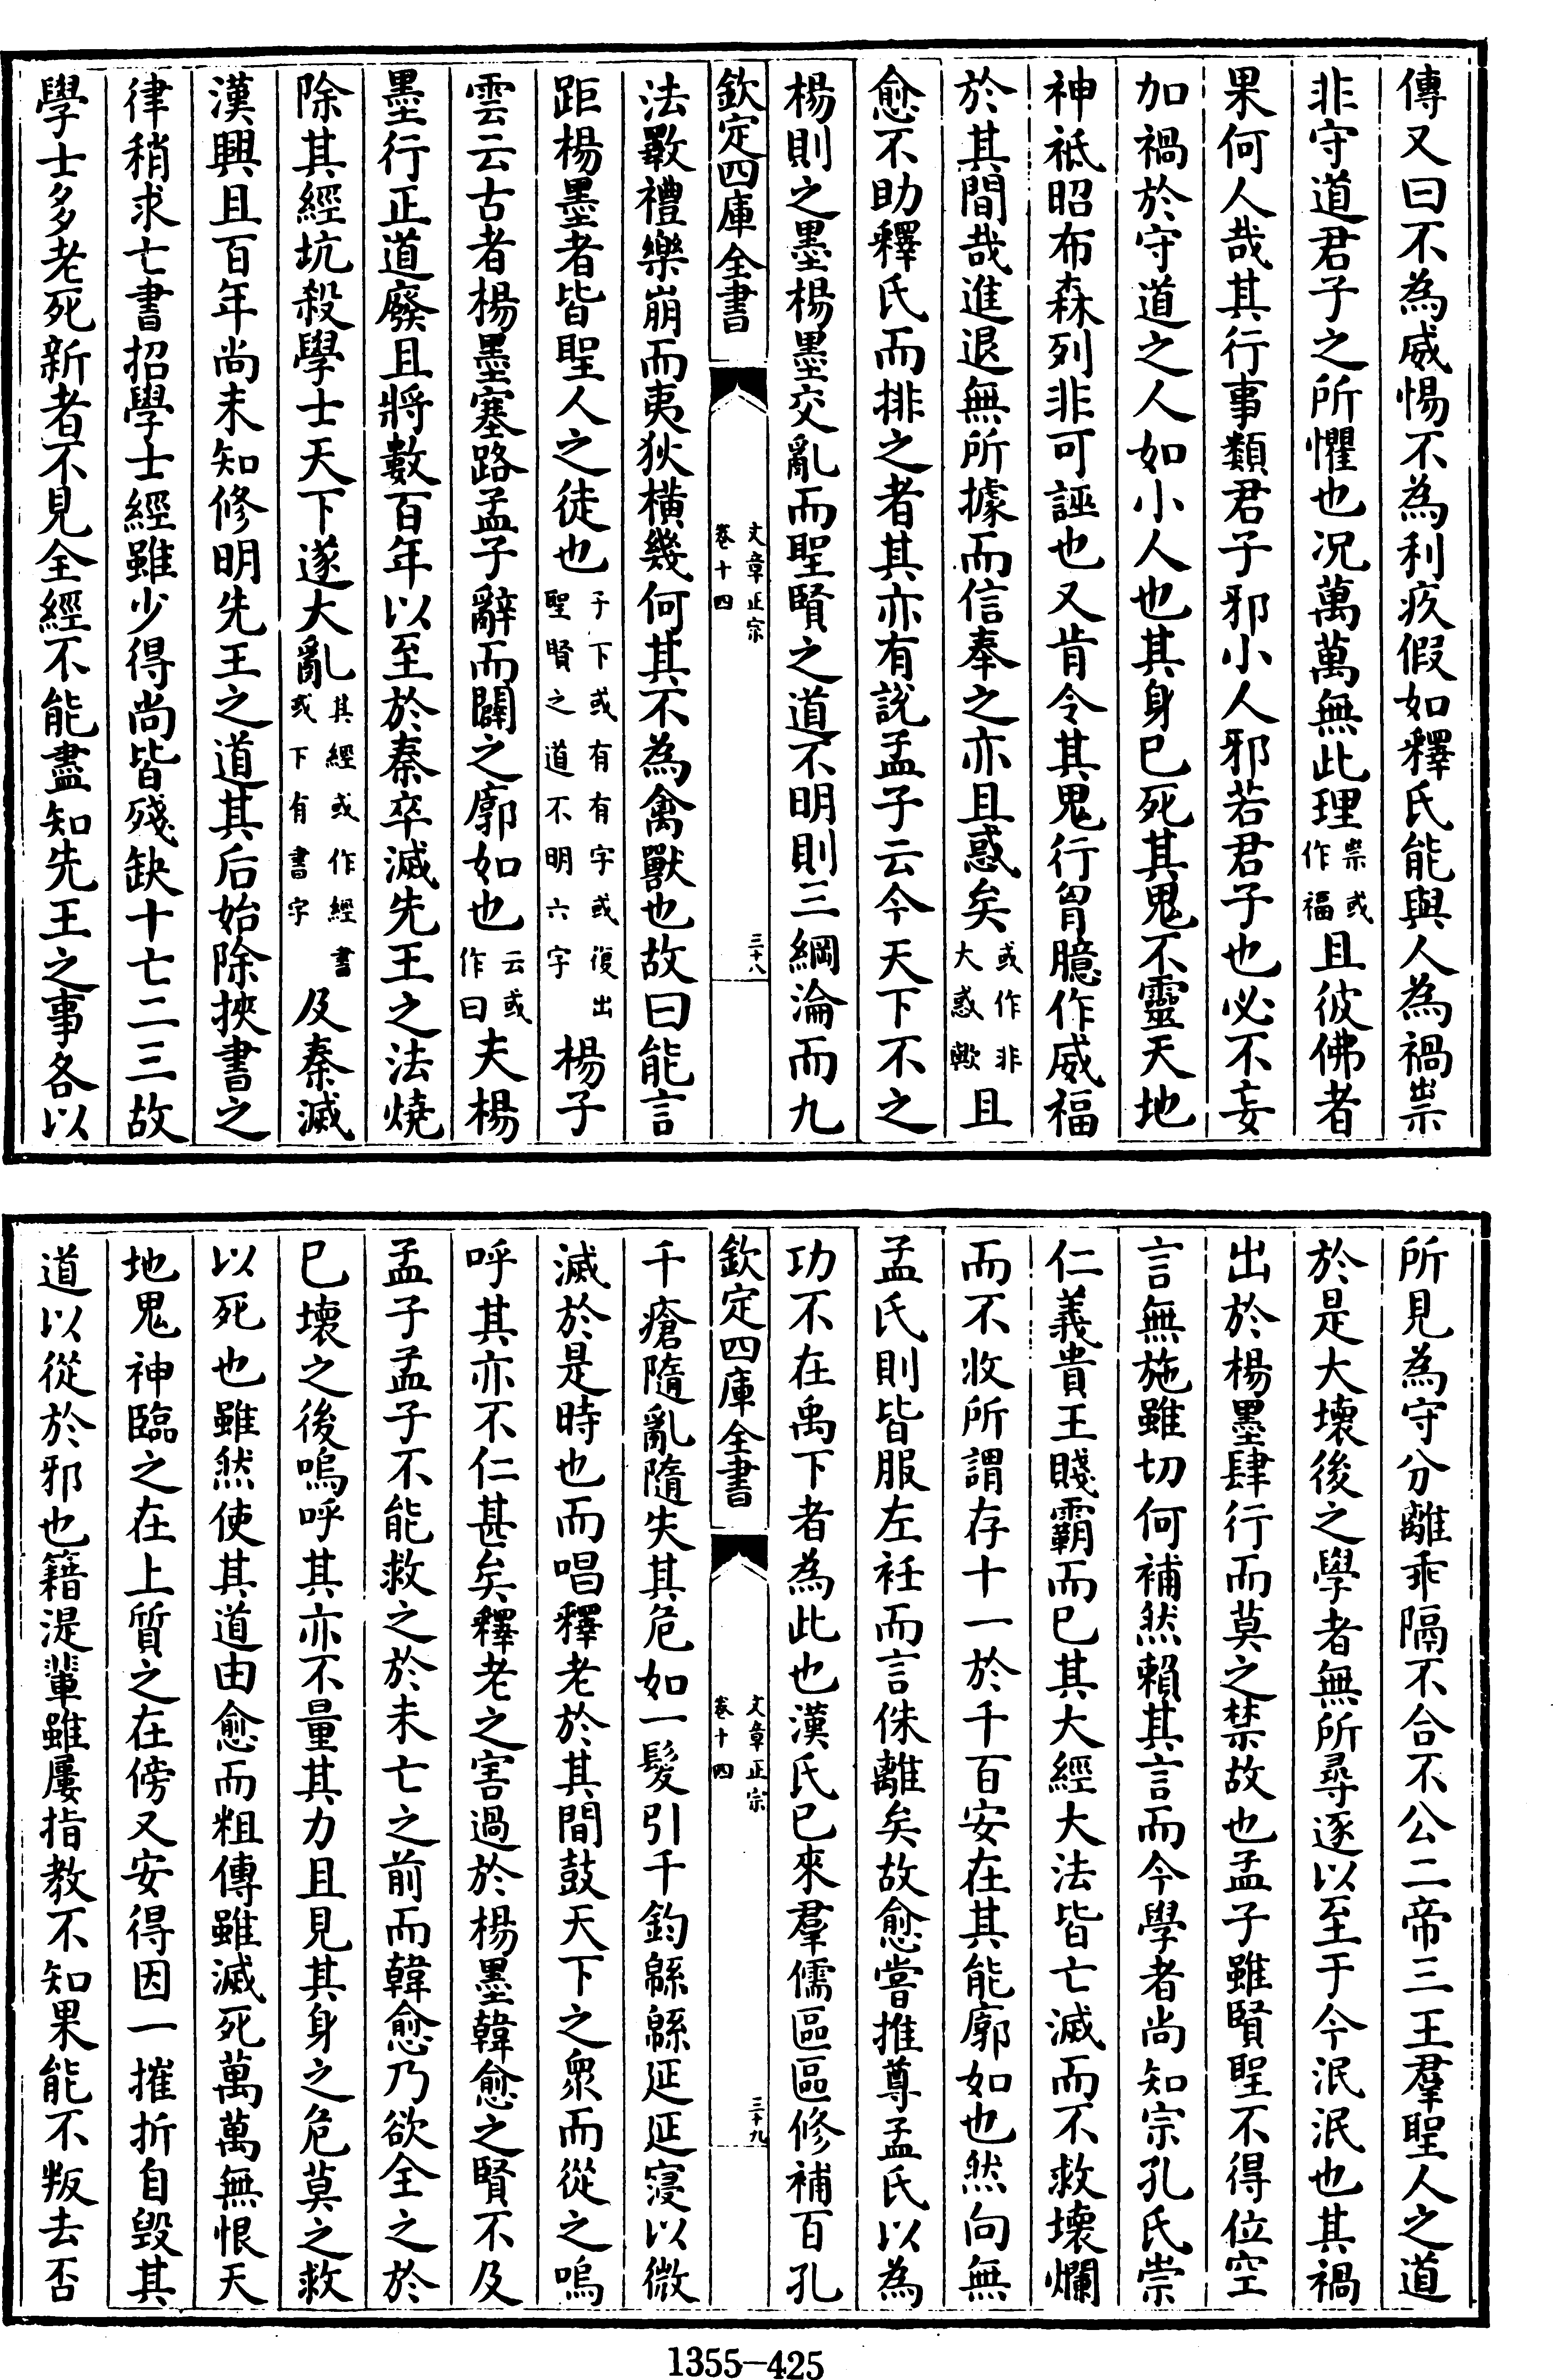 傳又曰不為威惕不為利疚假如釋氏能與人為禍祟
非守道君子之所懼也况萬萬無此理祟或作福且彼佛者
果何人哉其行事類君子邪小人邪若君子也必不妄
加禍於守道之人如小人也其身已死其鬼不靈天地
神祇昭布森列非可誣也又肯令其鬼行胷臆作威福
於其間哉進退無所據而信奉之亦且惑矣或作非大惑歟且
愈不助釋氏而排之者其亦有說孟子云今天下不之
楊則之墨楊墨交亂而聖賢之道不明則三綱淪而九
欽定四庫全書
文章正宗
卷十四
三十八
法斁禮樂崩而夷狄横幾何其不為禽獸也故曰能言
距楊墨者皆聖人之徒也子下或有有字或復出聖賢之道不明六字楊子
雲云古者楊墨塞路孟子辭而闢之廓如也云或作曰夫楊
墨行正道廢且將數百年以至於秦卒滅先王之法燒
除其經坑殺學士天下遂大亂其經或作經書或下有書字及秦滅
漢興且百年尚未知修明先王之道其后始除挾書之
律稍求亡書招學士經雖少得尚皆殘缺十亡二三故
學士多老死新者不見全經不能盡知先王之事各以
所見為守分離乖隔不合不公二帝三王羣聖人之道
於是大壞後之學者無所尋逐以至于今泯泯也其禍
出於楊墨肆行而莫之禁故也孟子雖賢聖不得位空
言無施雖切何補然賴其言而今學者尚知宗孔氏崇
仁義貴王賤霸而已其大經大法皆亡滅而不救壞爛
而不收所謂存十一於千百安在其能廓如也然向無
孟氏則皆服左衽而言侏離矣故愈嘗推尊孟氏以為
功不在禹下者為此也漢氏已來羣儒區區修補百孔
欽定四庫全書
文章正宗
卷十四
三十九
千瘡隨亂隨失其危如一髮引千鈞緜緜延延寖以微
滅於是時也而唱釋老於其間鼓天下之衆而從之嗚
呼其亦不仁甚矣釋老之害過於楊墨韓愈之賢不及
孟子孟子不能救之於未亡之前而韓愈乃欲全之於
已壞之後嗚呼其亦不量其力且見其身之危莫之救
以死也雖然使其道由愈而粗傳雖滅死萬萬無恨天
地鬼神臨之在上質之在傍又安得因一摧折自毀其
道以從於邪也籍湜輩雖屢指教不知果能不叛去否
1355-425